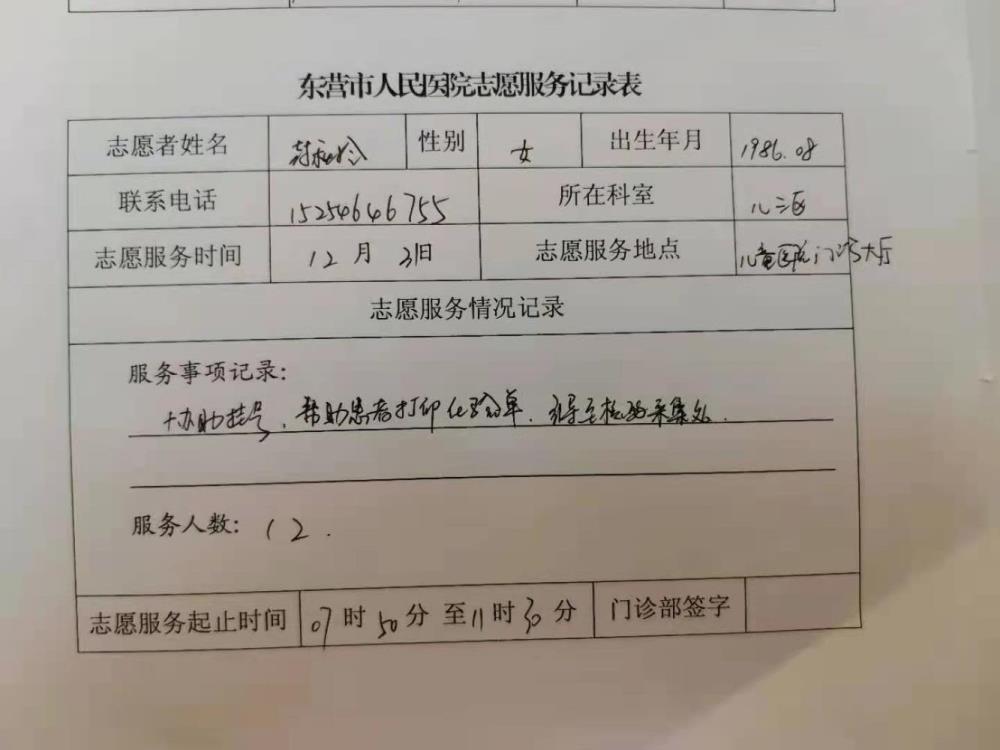 东营市人民医院志愿服务记录表
志愿者姓名 性别 女 出生年月 1986.08
联系电话 15254646755 所在科室 儿三区
志愿服务时间 12月31日 志愿服务地点 儿童医院门诊大厅
志愿服务情况记录
服务事项记录:
协助挂号,帮助患者打印化验单,引导至检验采集处.
服务人数: 12.
志愿服务起止时间 07时50分至11时30分 门诊部签字